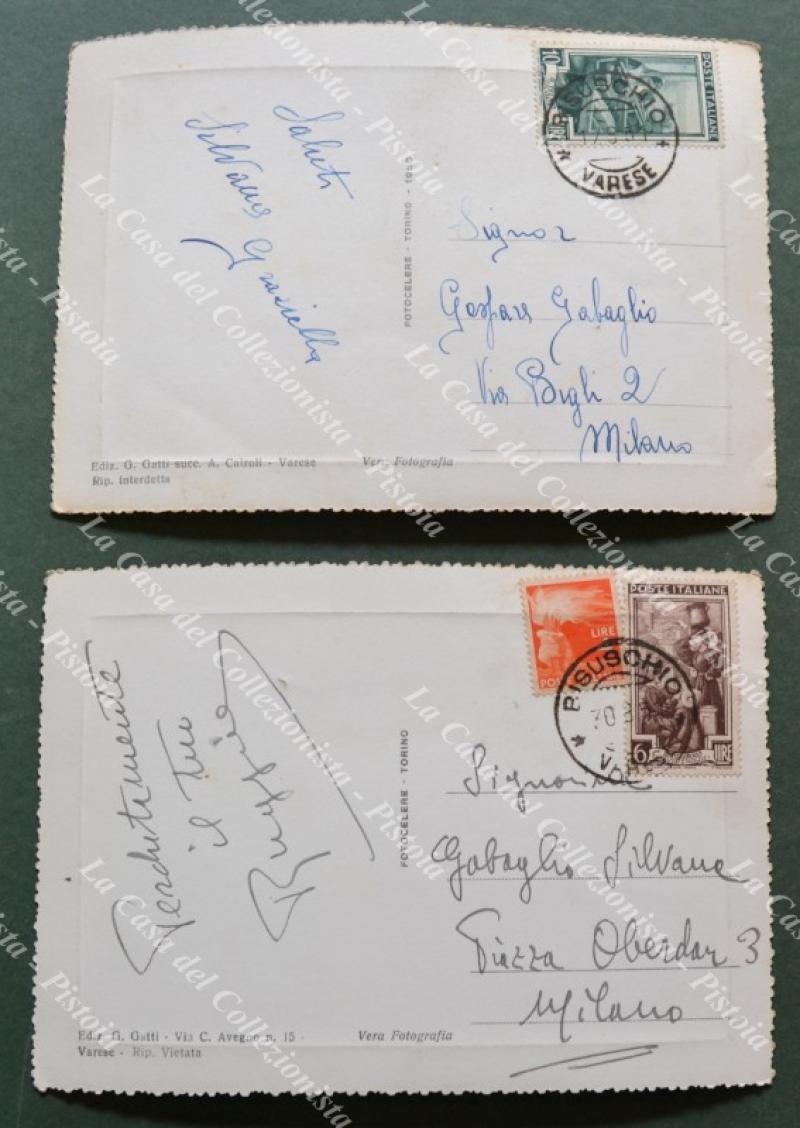 Saluti
Silvana Graziella
FOTOCELERE - TORINO - 1953
POSTE ITALIANE
10
LIRE
BISUSCHIO
* VARESE *
Signor
Gaspare Gabaglio
Via Bigli 2
Milano
Ediz. G. Gatti succ. A. Cairoli - Varese
Rip. interdetta
Vera Fotografia
Perdutamente
il tuo
FOTOCELERE - TORINO
LIRE
POSTE ITALIANE
6 LIRE
BISUSCHIO
VARESE
Signorina
Gabaglio Silvana
Piazza Oberdan 3
Milano
Ediz. G. Gatti - Via C. Avegno n. 15 -
Varese - Rip. Vietata
Vera Fotografia
La Casa del Collezionista - Pistoia